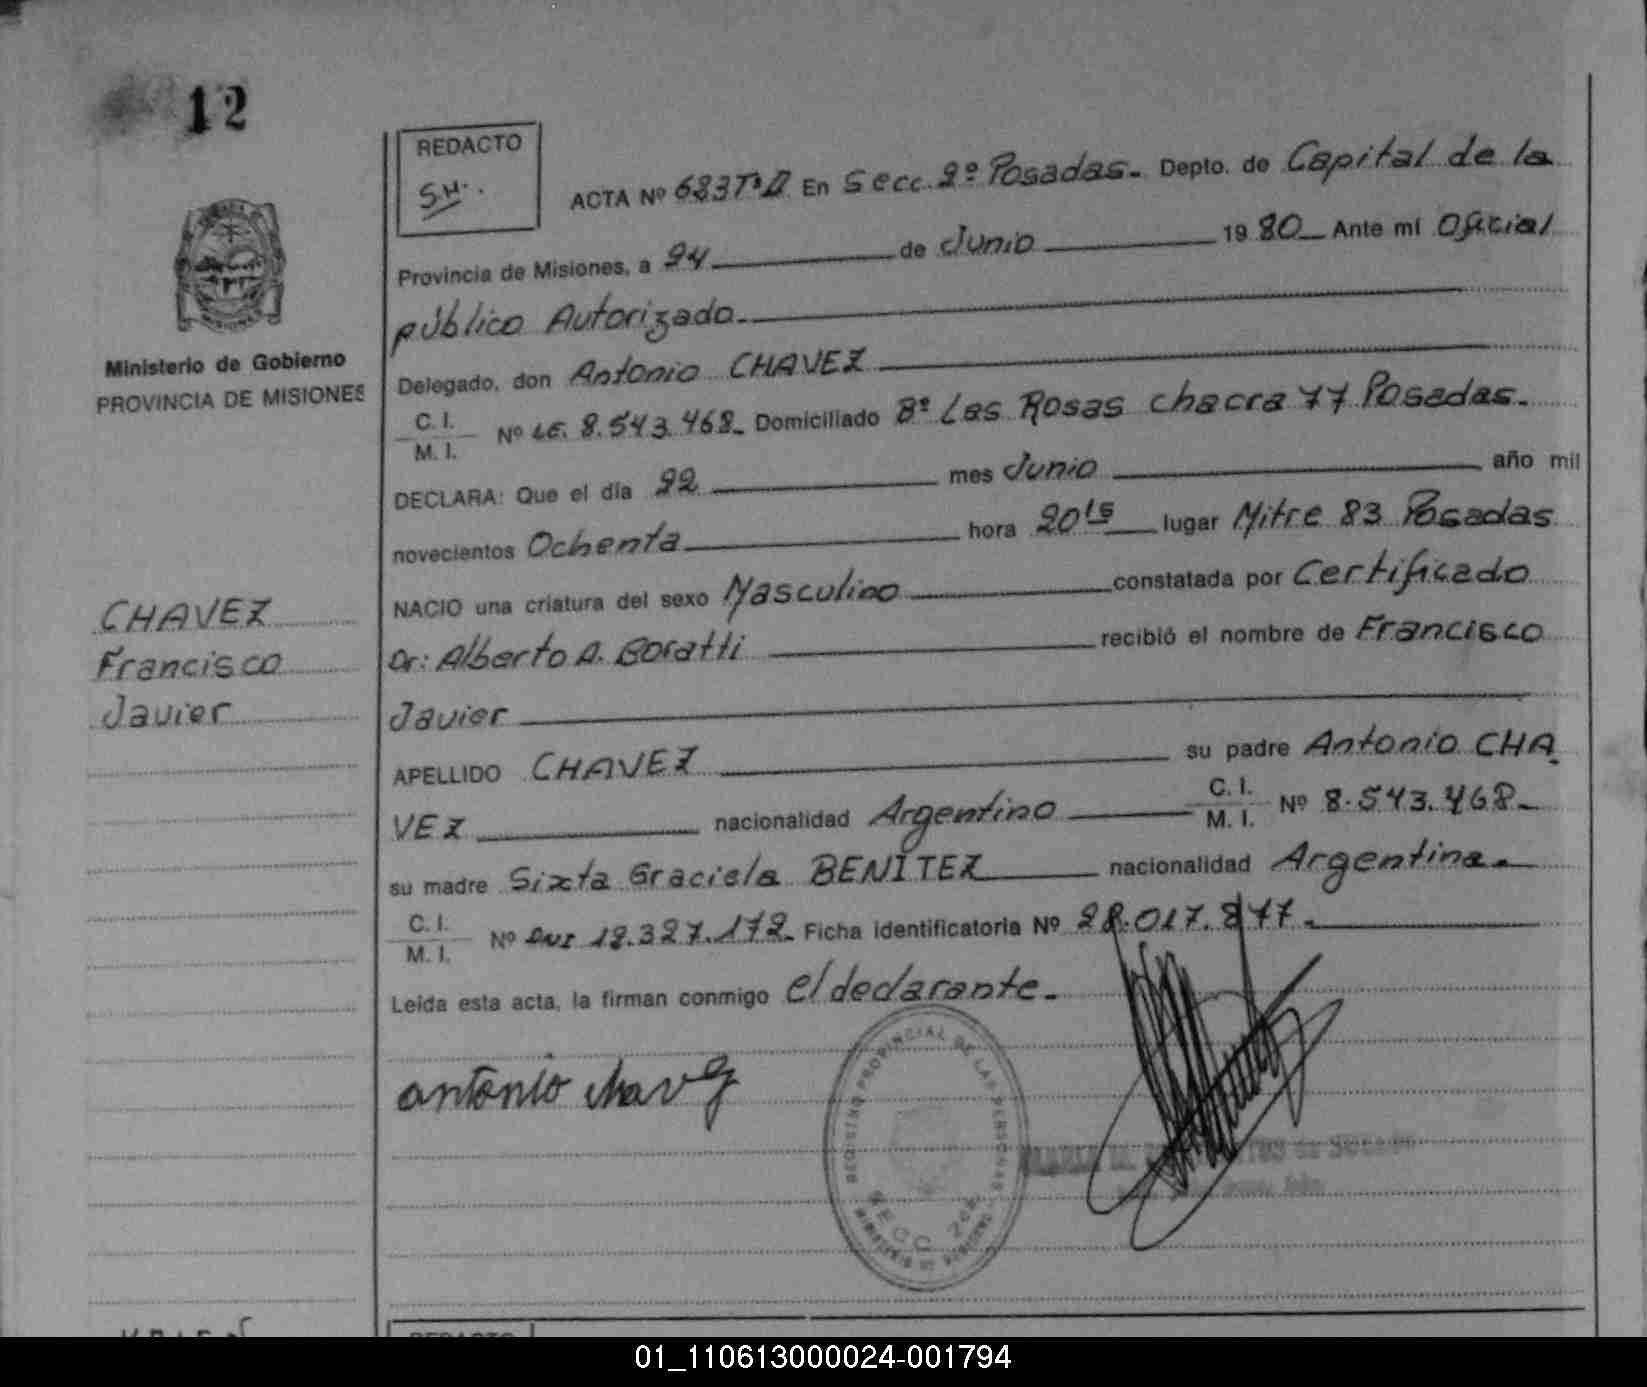 12
REDACTO
S.H.
ACTA Nº 683 Tº II En Secc. 2º Posadas. Depto. de Capital de la
Provincia de Misiones, a 24 de Junio 1980 Ante mi Oficial
público Autorizado.
Ministerio de Gobierno
PROVINCIA DE MISIONES
Delegado, don Antonio CHAVEZ
C. I.
M. I.
Nº LE. 8.543.468. Domiciliado Bº Las Rosas chacra 77 Posadas.
DECLARA: Que el día 22 mes Junio año mil
novecientos Ochenta hora 20 15 lugar Mitre 83 Posadas
NACIO una criatura del sexo Masculino constatada por Certificado
Dr: Alberto A. Boratti recibió el nombre de Francisco
Javier
CHAVEZ
Francisco
Javier
APELLIDO CHAVEZ su padre Antonio CHA
VEZ nacionalidad Argentino C. I. M. I. Nº 8.543.468.
su madre Sixta Graciela BENITEZ nacionalidad Argentina.
C. I.
M. I.
Nº DNI 12.327.172. Ficha identificatoria Nº 28.017.877.
Leída esta acta, la firman conmigo el declarante.
antonio chavez
REGISTRO PROVINCIAL DE LAS PERSONAS
SECC. 2da.
REDACTO
01_110613000024-001794